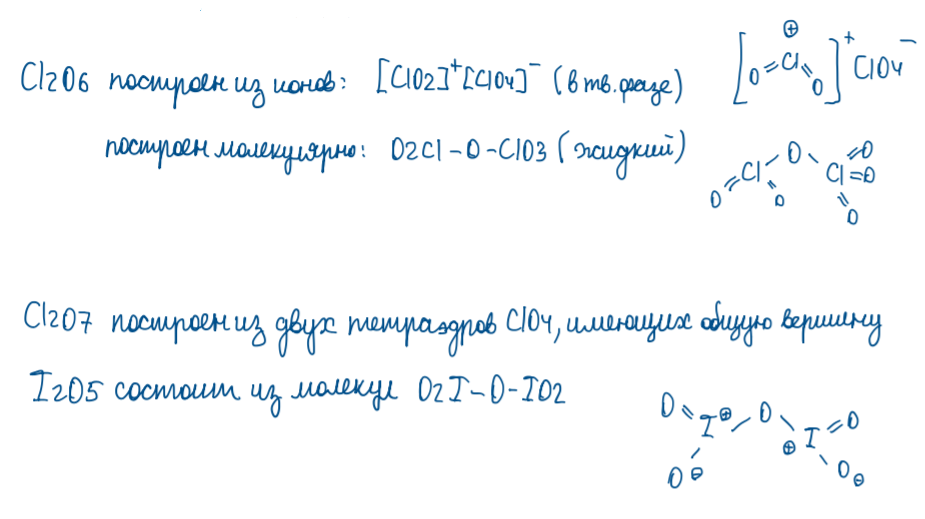 Cl2O6 построен из ионов: [ClO2]⁺[ClO4]⁻ (в тв. фазе)
[O=Cl=O]⁺ ClO4⁻
⊕
построен молекулярно: O2Cl-O-ClO3 (жидкий)
O=Cl-O-Cl=O
O O O
Cl2O7 построен из двух тетраэдров ClO4, имеющих общую вершину
I2O5 состоит из молекул O2I-O-IO2
O=I⊕-O-I⊕=O
O⊖ O⊖